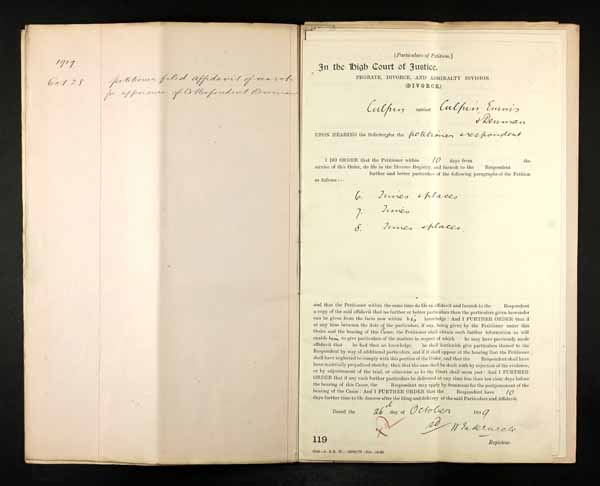 1919
Oct 28 petitioner filed Affidavit of search
for appearance of Co Respondent Denman
(Particulars of Petition.)
In the High Court of Justice.
PROBATE, DIVORCE, AND ADMIRALTY DIVISION
(DIVORCE)
Culpin against Culpin
& Denman
UPON HEARING the Solicitors for the petitioner & respondent
I DO ORDER that the Petitioner within 10 days from the
service of this Order, do file in the Divorce Registry, and furnish to the Respondent
further and better particulars of the following paragraphs of the Petition
as follows:—
6. Times & places
7. Times
8. Times & places.
and that the Petitioner within the same time do file an affidavit and furnish to the Respondent
a copy of the said affidavit that no further or better particulars than the particulars given hereunder
can be given from the facts now within his knowledge: And I FURTHER ORDER that if
at any time between the date of the particulars, if any, being given by the Petitioner under this
Order and the hearing of this Cause, the Petitioner shall obtain such further information as will
enable him to give particulars of the matters in respect of which he may have previously made
affidavit that he had then no knowledge, he shall forthwith give particulars thereof to the
Respondent by way of additional particulars, and if it shall appear at the hearing that the Petitioner
shall have neglected to comply with this portion of the Order, and that the Respondent shall have
been materially prejudiced thereby, then that the same shall be dealt with by rejection of the evidence,
or by adjournment of the trial, or otherwise as to the Court shall seem just: And I FURTHER
ORDER that if any such further particulars be delivered at any time less than ten clear days before
the hearing of this Cause, the Respondent may apply by Summons for the postponement of the
hearing of the Cause: And I FURTHER ORDER that the Respondent have 10
days further time to file Answer after the filing and delivery of the said Particulars and Affidavit.
Dated the day of October 1919
Registrar.
119